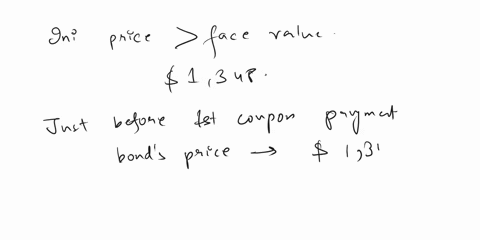 Ini price > face value.
$ 1,348.
Just before 1st coupon payment
bond's price → $ 1,31